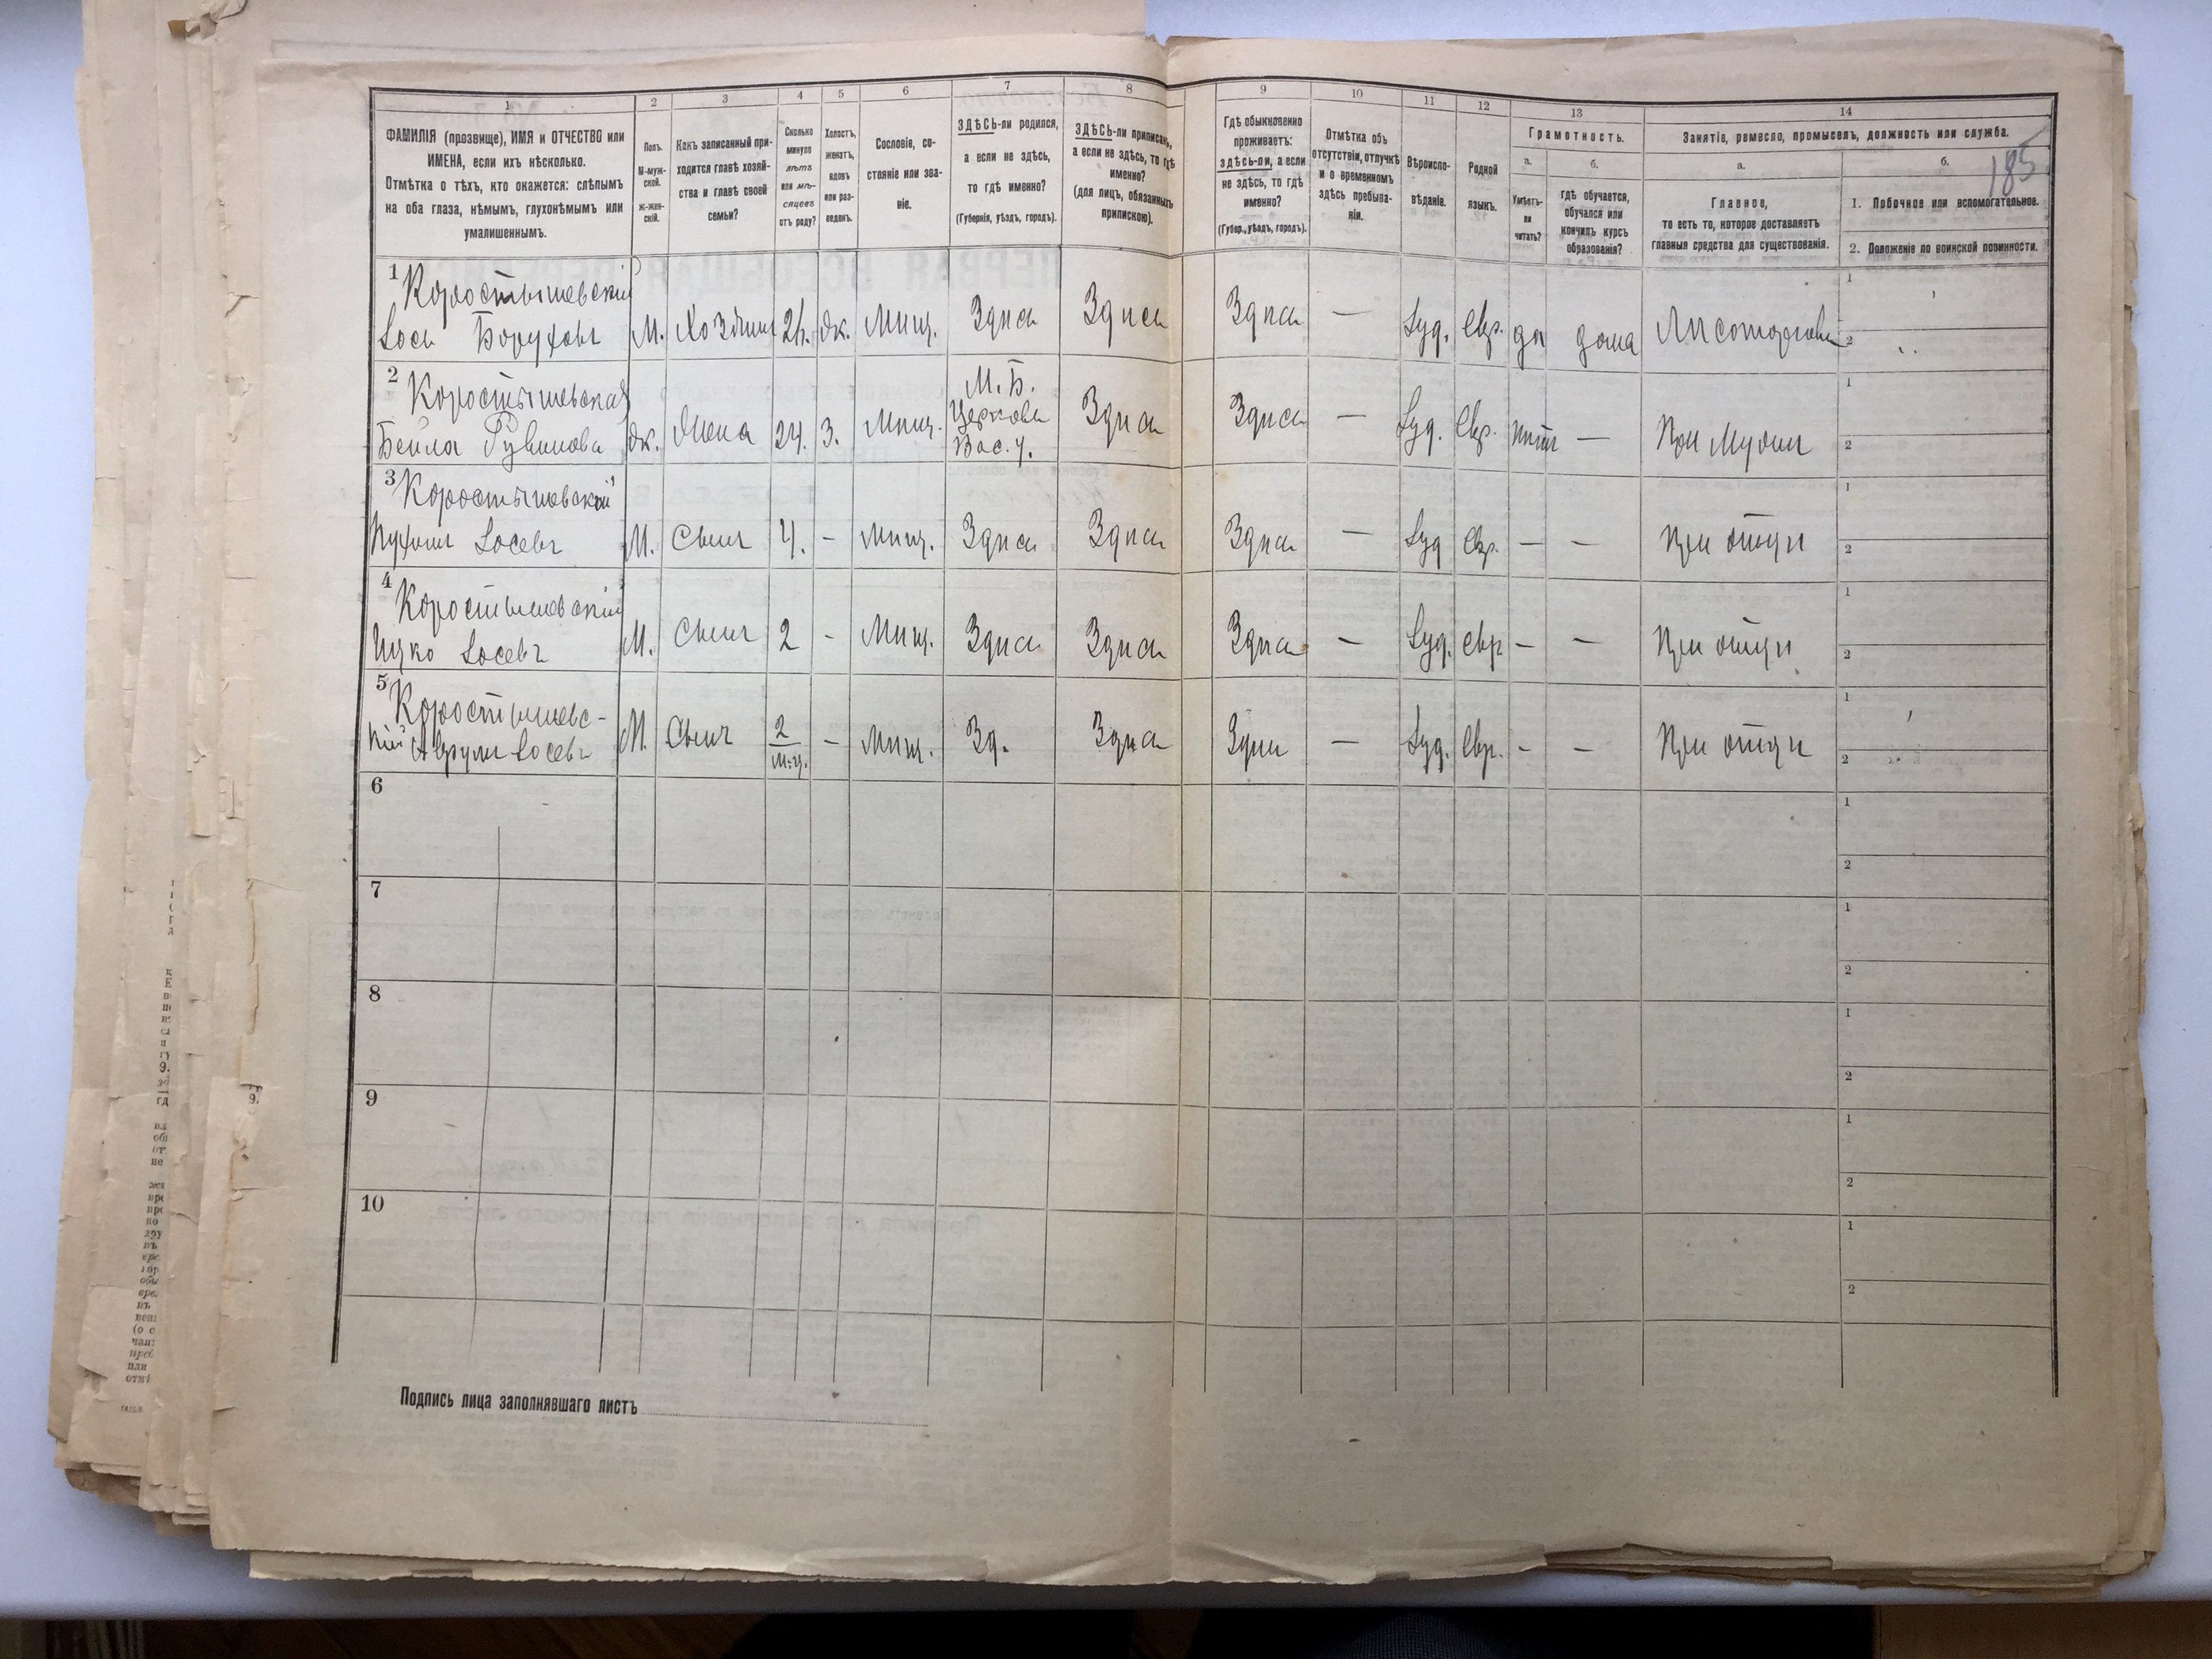 1 2 3 4 5 6 7 8 9 10 11 12 13 14
ФАМИЛІЯ (прозвище), ИМЯ и ОТЧЕСТВО или
ИМЕНА, если ихъ нѣсколько.
Отмѣтка о тѣхъ, кто окажется: слѣпымъ
на оба глаза, нѣмымъ, глухонѣмымъ или
умалишеннымъ.
Полъ.
М-муж-
ской.
ж-жен-
скій.
Какъ записанный при-
ходится главѣ хозяй-
ства и главѣ своей
семьи?
Сколько
минуло
лѣтъ
или мѣ-
сяцевъ
отъ роду?
Холостъ,
женатъ,
вдовъ
или раз-
веденъ.
Сословіе, со-
стояніе или зва-
ніе.
ЗДѢСЬ-ли родился,
а если не здѣсь,
то гдѣ именно?
(Губернія, уѣздъ, городъ).
ЗДѢСЬ-ли приписанъ,
а если не здѣсь, то гдѣ
именно?
(для лицъ, обязанныхъ
припискою).
Гдѣ обыкновенно
проживаетъ:
здѣсь-ли, а если
не здѣсь, то гдѣ
именно?
(Губер., уѣздъ, городъ).
Отмѣтка объ
отсутствіи, отлучкѣ
и о временномъ
здѣсь пребыва-
ніи.
Вѣроиспо-
вѣданіе.
Родной
языкъ.
Грамотность.
а.
Умѣетъ-
ли
читать?
б.
гдѣ обучается,
обучался или
кончилъ курсъ
образованія?
Занятіе, ремесло, промыселъ, должность или служба.
а.
Главное,
то есть то, которое доставляетъ
главныя средства для существованія.
б.
185
1. Побочное или вспомогательное.
2. Положеніе по воинской повинности.
1 Коростышевскій
Іось Боруховъ М. Хозяинъ ж. Мищ. Здисъ Здисъ Здисъ — Іуд. Евр. да дома Лисоторговецъ
1
2
2 Коростышевская
Бейла Рувинова ж. Жена 24. З. Мищ.
М. Б.
Церковь
Вас. у.
Здисъ Здисъ — Іуд. Евр. нитъ — При Мужи
1
2
3 Коростышевскій
Іосевъ М. Сынъ 4. - Мищ. Здисъ Здисъ Здисъ — Іуд Евр. — — При отци
1
2
4 Коростышевскій
Ицко Іосевъ М. Сынъ 2 - Мищ. Здисъ Здисъ Здисъ — Іуд. Евр — — При отци
1
2
5 Коростышевс-
кій Іосевъ М. Сынъ 2 м-ц. - Мищ. Зд. Здисъ Здись — Іуд. Евр. - - При отци
1
2
6
1
2
7
1
2
8
1
2
9
1
2
10
1
2
Подпись лица заполнявшаго листъ